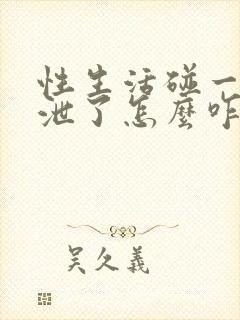 性生活碰一
泄了怎麼咋
吴久義